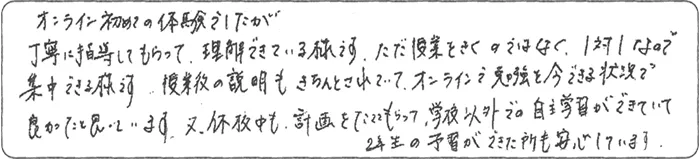 オンライン初めての体験でしたが
丁寧に指導してもらって、理解できている様です。ただ授業をきくのではなく、1対1なので
集中できる様です。授業後の説明もきちんとされていて、オンラインで勉強を今できる状況で
良かったと思っています。又、休校中も、計画をたててもらって、学校以外での自主学習ができていて
2年生の予習ができた所も安心しています。